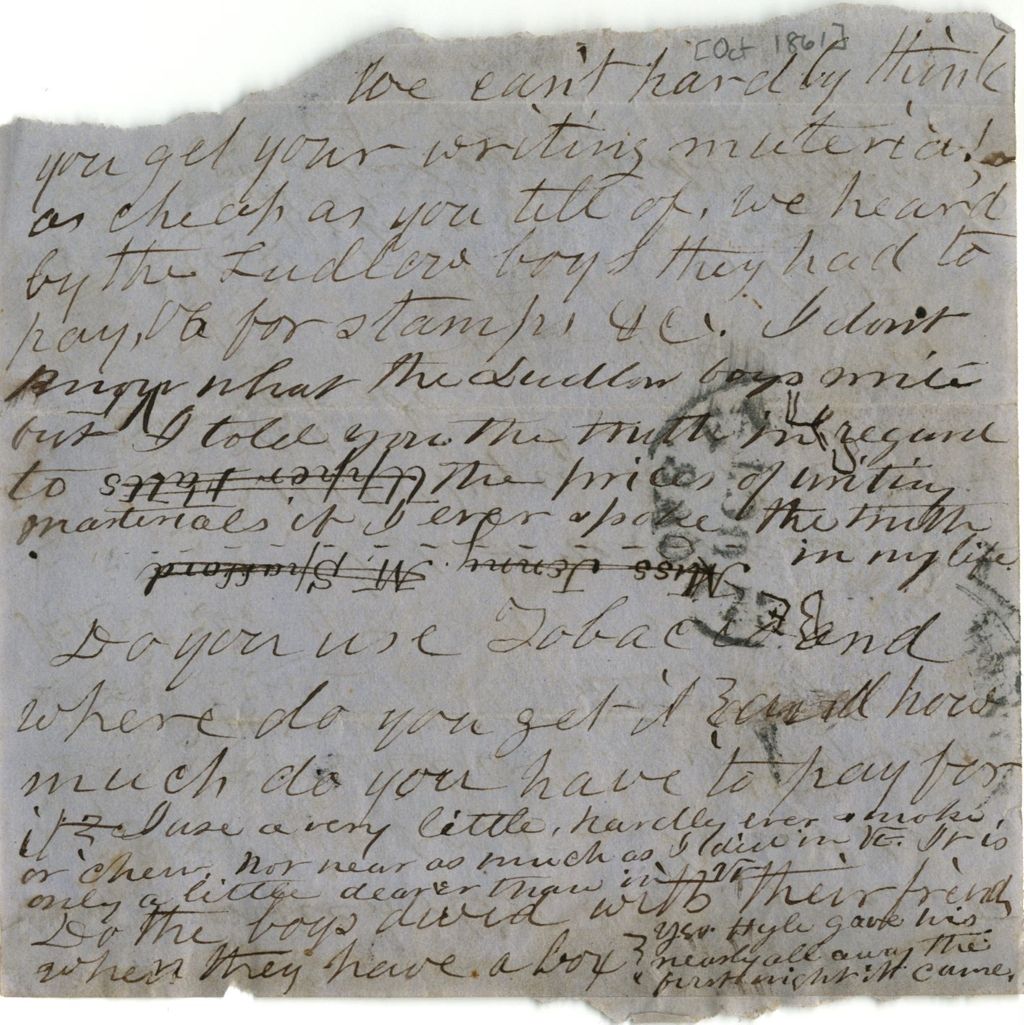 [Oct 1861]
We can't hardly think
you get your writing material
as cheap as you tell of, we heard
by the Ludlow boys they had to
pay, for stamps &c. I don't
know what the Ludlow boys write
but I told you the truth in regard
to Upper Mills the prices of writing
materials if I ever spoke the truth
in my life.
Miss Jenny M. Spafford
Do you use Tobacco and
where do you get it and how
much do you have to pay for
it? I use a very little, hardly ever smoke,
or chew, nor near as much as I did in Vt. It is
only a little dearer than in Vt
Do the boys divid with their friends
when they have a box?
yes. Hyle gave his
nearly all away the
first night it came.